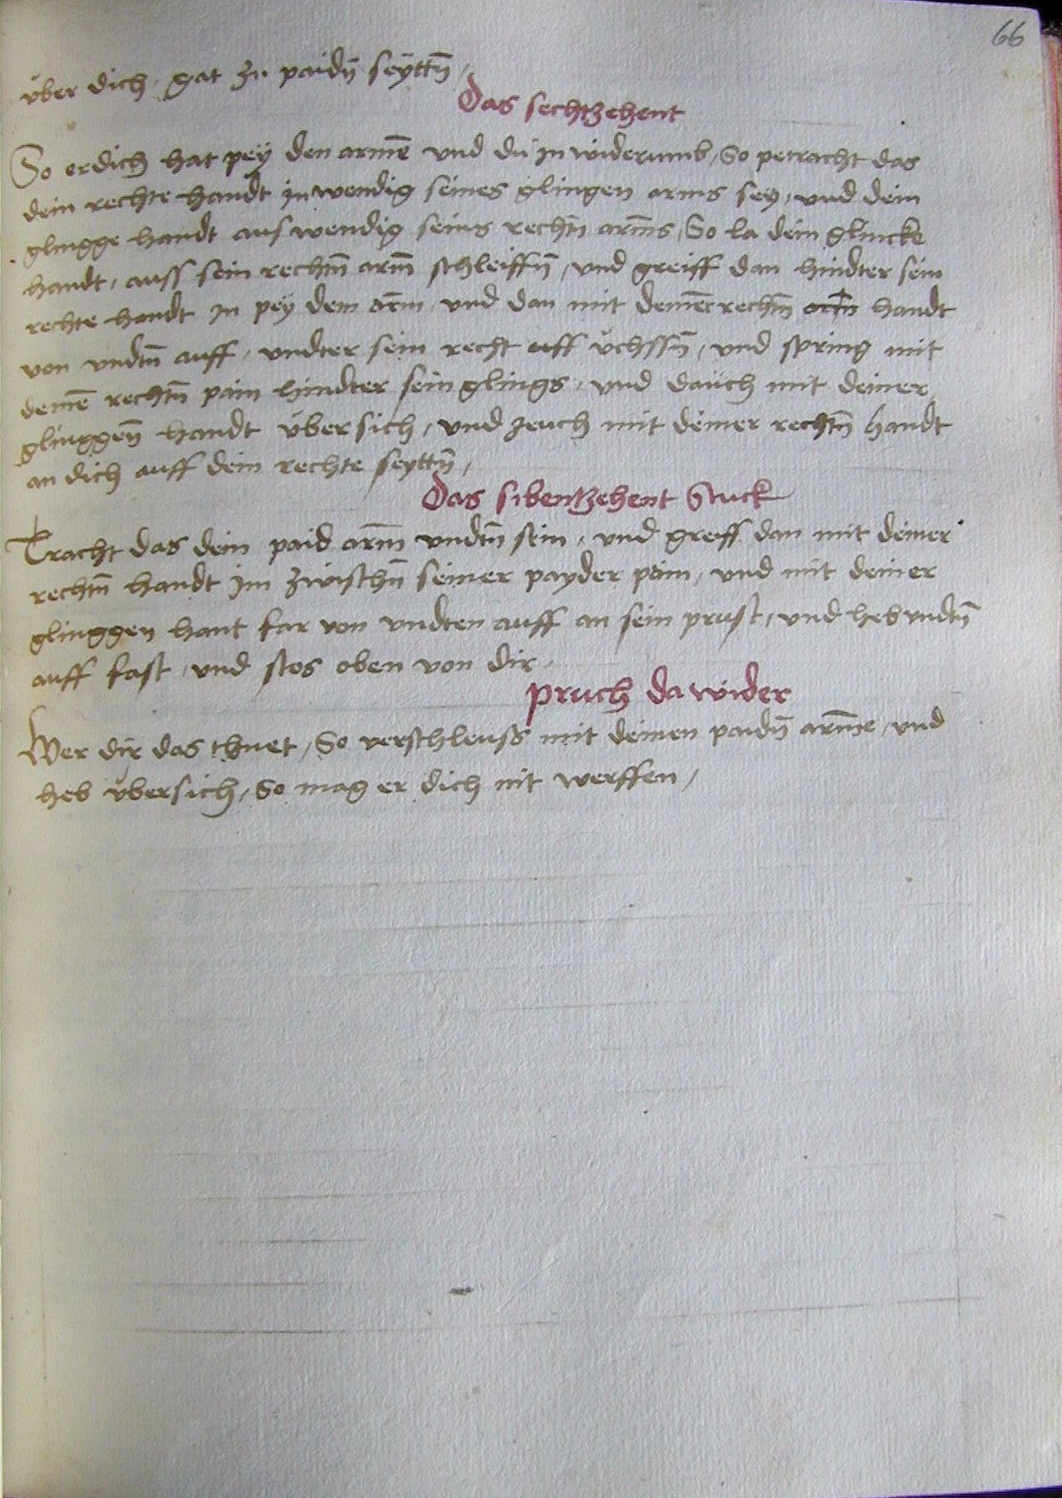 66
über dich / gat zu paidñ seyttñ /
Das sechtzehent
So er dich hat pey den armē und du in widerumb / So petracht das
dein rechte handt inwendig seines glingen arms sey / und dein
glingge handt auswendig seins rechtñ arm̄s / So la dein glincke
handt / auss sein rechtñ arm̄ schleiffñ / und greiff dan hindter sein
rechte handt in pey dem arm̄ / und dan mit deinē rechtñ handt
von undtñ auff / undter sein recht uchssñ / und spring mit
deinē rechtñ pain hindter sein glings / und dauch mit deiner
glinggen̄ handt übersich / und zeuch mit deiner rechtñ handt
an dich auff dein rechte seyttñ /
Das sibentzehent Stuck
Tracht das dein paid arm̄ undtñ sein / und greiff dan mit deiner
rechtñ handt im zwischñ seiner payder pain / und mit deiner
glinggen hant far von undten auff an sein prust / und heb undtñ
auff fast / und stos oben von dir /
Pruch da wider
Wer dir das thuet / So verschleuss mit deinen paidñ arm̄e / und
heb übersich / So mag er dich nit werffen /